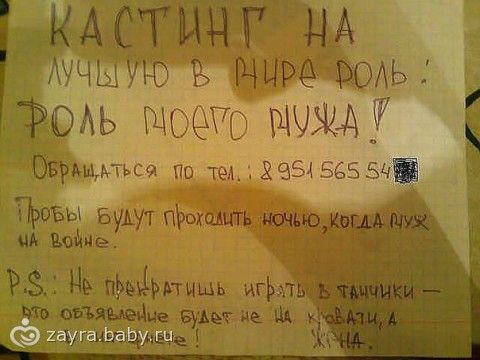 КАСТИНГ НА
ЛУЧШУЮ В МИРЕ РОЛЬ:
РОЛЬ МОЕГО МУЖА!
ОБРАЩАТЬСЯ ПО ТЕЛ.: 8 951 565 54
ПРОБЫ БУДУТ ПРОХОДИТЬ НОЧЬЮ, КОГДА МУЖ
НА ВОЙНЕ.
P.S.: НЕ ПРЕКРАТИШЬ ИГРАТЬ В ТАНЧИКИ —
ЭТО ОБЪЯВЛЕНИЕ БУДЕТ НЕ НА КРОВАТИ, А
! ЖЕНА.
zayra.baby.ru